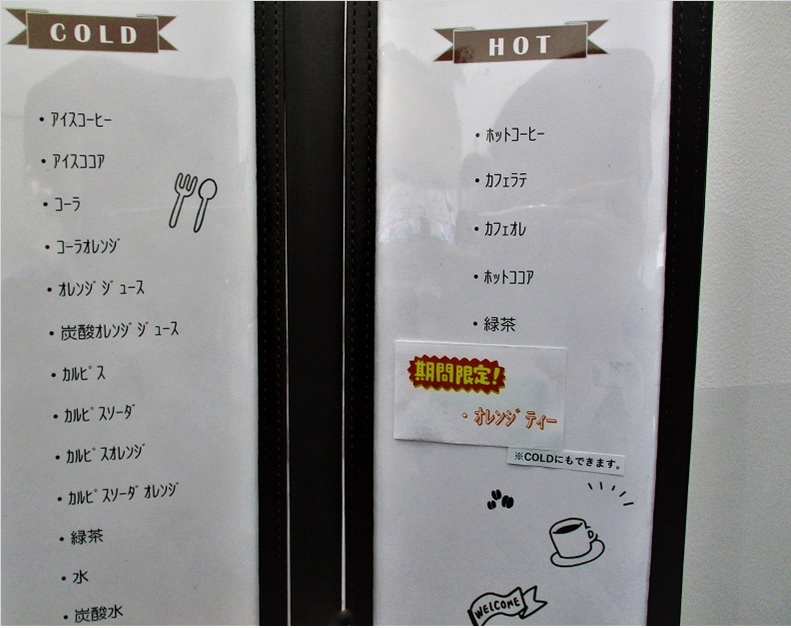 COLD
・アイスコーヒー
・アイスココア
・コーラ
・コーラオレンジ
・オレンジジュース
・炭酸オレンジジュース
・カルピス
・カルピスソーダ
・カルピスオレンジ
・カルピスソーダオレンジ
・緑茶
・水
・炭酸水
HOT
・ホットコーヒー
・カフェラテ
・カフェオレ
・ホットココア
・緑茶
期間限定!
・オレンジティー
※COLDにもできます。
WELCOME